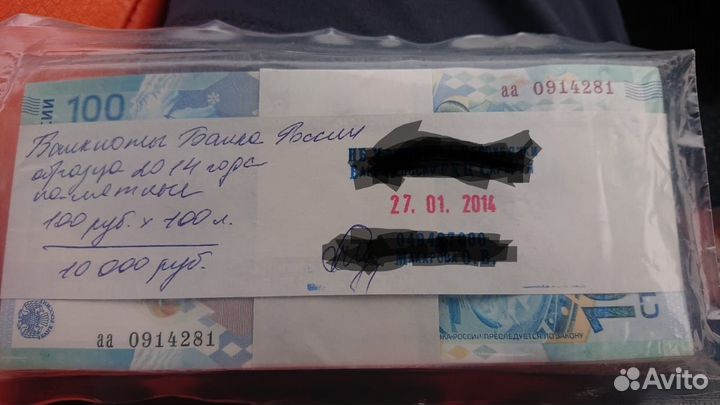 100
аа 0914281
Банкноты Банка России
образца 2014 года
памятные
100 руб. x 100 л.
10 000 руб.
27. 01. 2014
аа 0914281
КА РОССИИ ПРЕСЛЕДУЕТСЯ ПО ЗАКОНУ
Avito